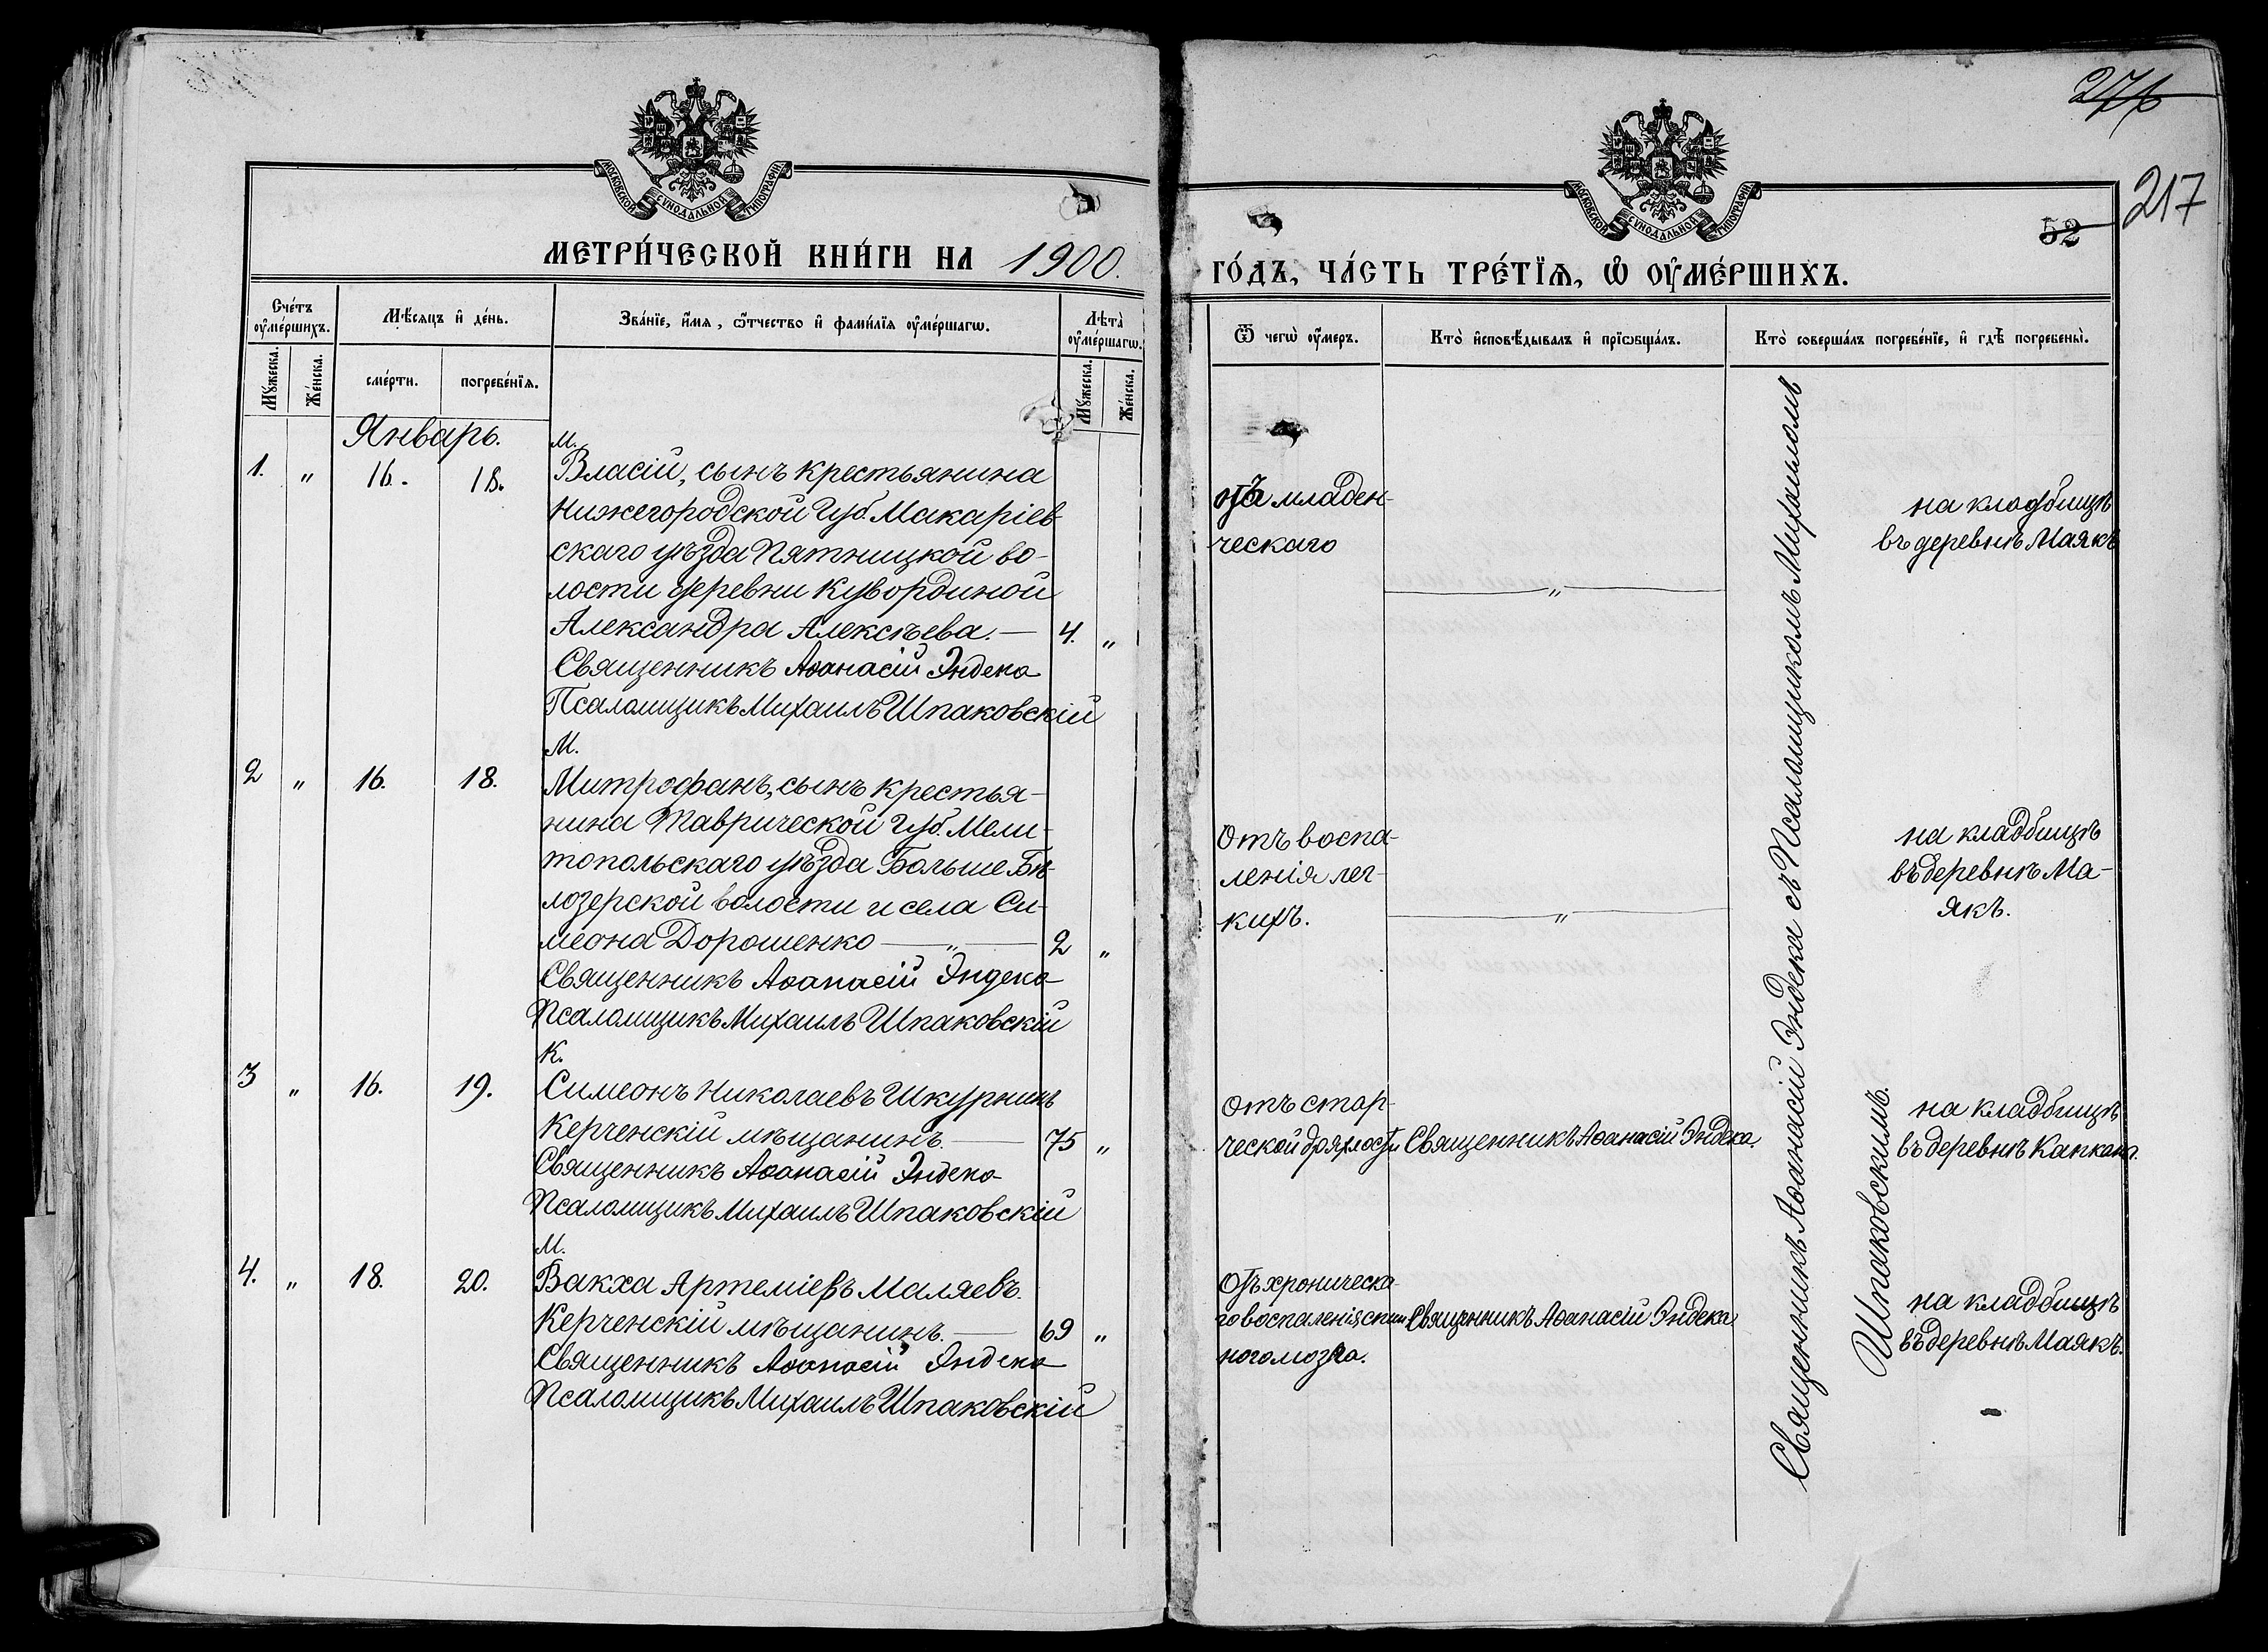 276
217
52
МОСКОВСКОЙ СѴНОДАЛЬНОЙ ТИПОГРАФІИ
МОСКОВСКОЙ СѴНОДАЛЬНОЙ ТИПОГРАФІИ
МЕТРИ́ЧЕСКОЙ КНИ́ГИ НА 1900.
ГО́ДЪ, ЧА́СТЬ ТРЕ́ТЇѦ, Ѡ҆ ОУ҆МЕ́РШИХЪ.
Сче́тъ оу҆ме́ршихъ.
Мѣ́сяцъ и҆ де́нь.
Зва́нїе, и҆́мя, ѻ҆́тчество и҆ фами́лїя оу҆ме́ршагѡ.
Лѣта̀ оу҆ме́ршагѡ.
Ѿ чегѡ̀ оу҆́меръ.
Кто̀ и҆сповѣ́дывалъ и҆ прїѡбща́лъ.
Кто̀ соверша́лъ погребе́нїе, и҆ гдѣ̀ погребены̀.
Му́жеска. Же́нска.
сме́рти. погребе́нїѧ.
Му́жеска. Же́нска.
Январь.
М.
1. " 16. 18. Власій, сынъ крестьянина
Нижегородской Губ. Макаріев-
скаго уѣзда Пятницкой во-
лости деревни Кувординой
Александра Алексѣева. — 4. "
Священникъ Аѳанасій Эндека
Псаломщикъ Михаилъ Шпаковскій
отъ младен-
ческаго
"
на кладбищѣ
въ деревнѣ Маякѣ
М.
2 " 16. 18. Митрофанъ, сынъ крестья-
нина Таврической Губ. Мели-
топольскаго уѣзда Больше Бѣ-
лозерской волости и села Си-
меона Дорошенко — " — 2 "
Священникъ Аѳанасій Эндека
Псаломщикъ Михаилъ Шпаковскій
Отъ воспа-
ленія лег-
кихъ.
"
на кладбищѣ
въ деревнѣ Ма-
якѣ.
К.
3 " 16. 19. Симеонъ Николаевъ Шкурнинъ
Керченскій мѣщанинъ. — 75 "
Священникъ Аѳанасій Эндека
Псаломщикъ Михаилъ Шпаковскій
отъ стар-
ческой дряхлости
Священникъ Аѳанасій Эндека.
на кладбищѣ
въ деревнѣ Капканы.
М.
4. " 18. 20. Вакха Артеміевъ Маляевъ.
Керченскій мѣщанинъ. — 69 "
Священникъ Аѳанасій Эндека
Псаломщикъ Михаилъ Шпаковскій
Отъ хроническа-
го воспаленія спин-
ного мозга.
Священникъ Аѳанасій Эндека
на кладбищѣ
въ деревнѣ Маякѣ.
Священникъ Аѳанасій Эндека съ Псаломщикомъ Михаиломъ
Шпаковскимъ.